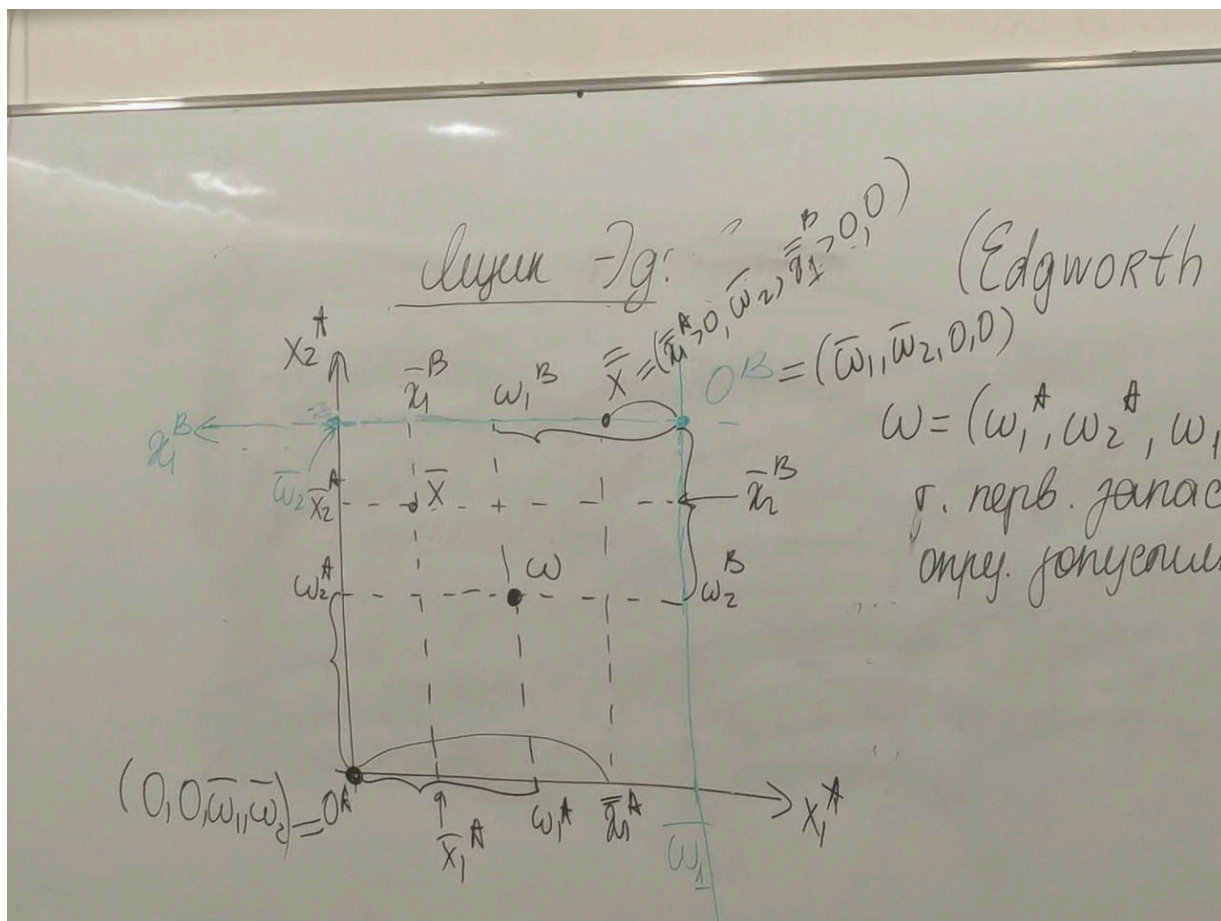 Ящик Эд.
(Edgworth
x̿ = (x̿₁ᴬ>0, ω̄₂, x̿₁ᴮ>0, 0)
Oᴮ = (ω̄₁, ω̄₂, 0, 0)
ω = (ω₁ᴬ, ω₂ᴬ, ω₁
т. перв. запас
опру. допустим
x₂ᴬ
x̄₁ᴮ
ω₁ᴮ
x₁ᴮ
ω̄₂
x̄₂ᴬ
x̄
x̄₂ᴮ
ω₂ᴬ
ω
ω₂ᴮ
(0, 0, ω̄₁, ω̄₂) = Oᴬ
x̄₁ᴬ
ω₁ᴬ
x̿₁ᴬ
ω̄₁
x₁ᴬ